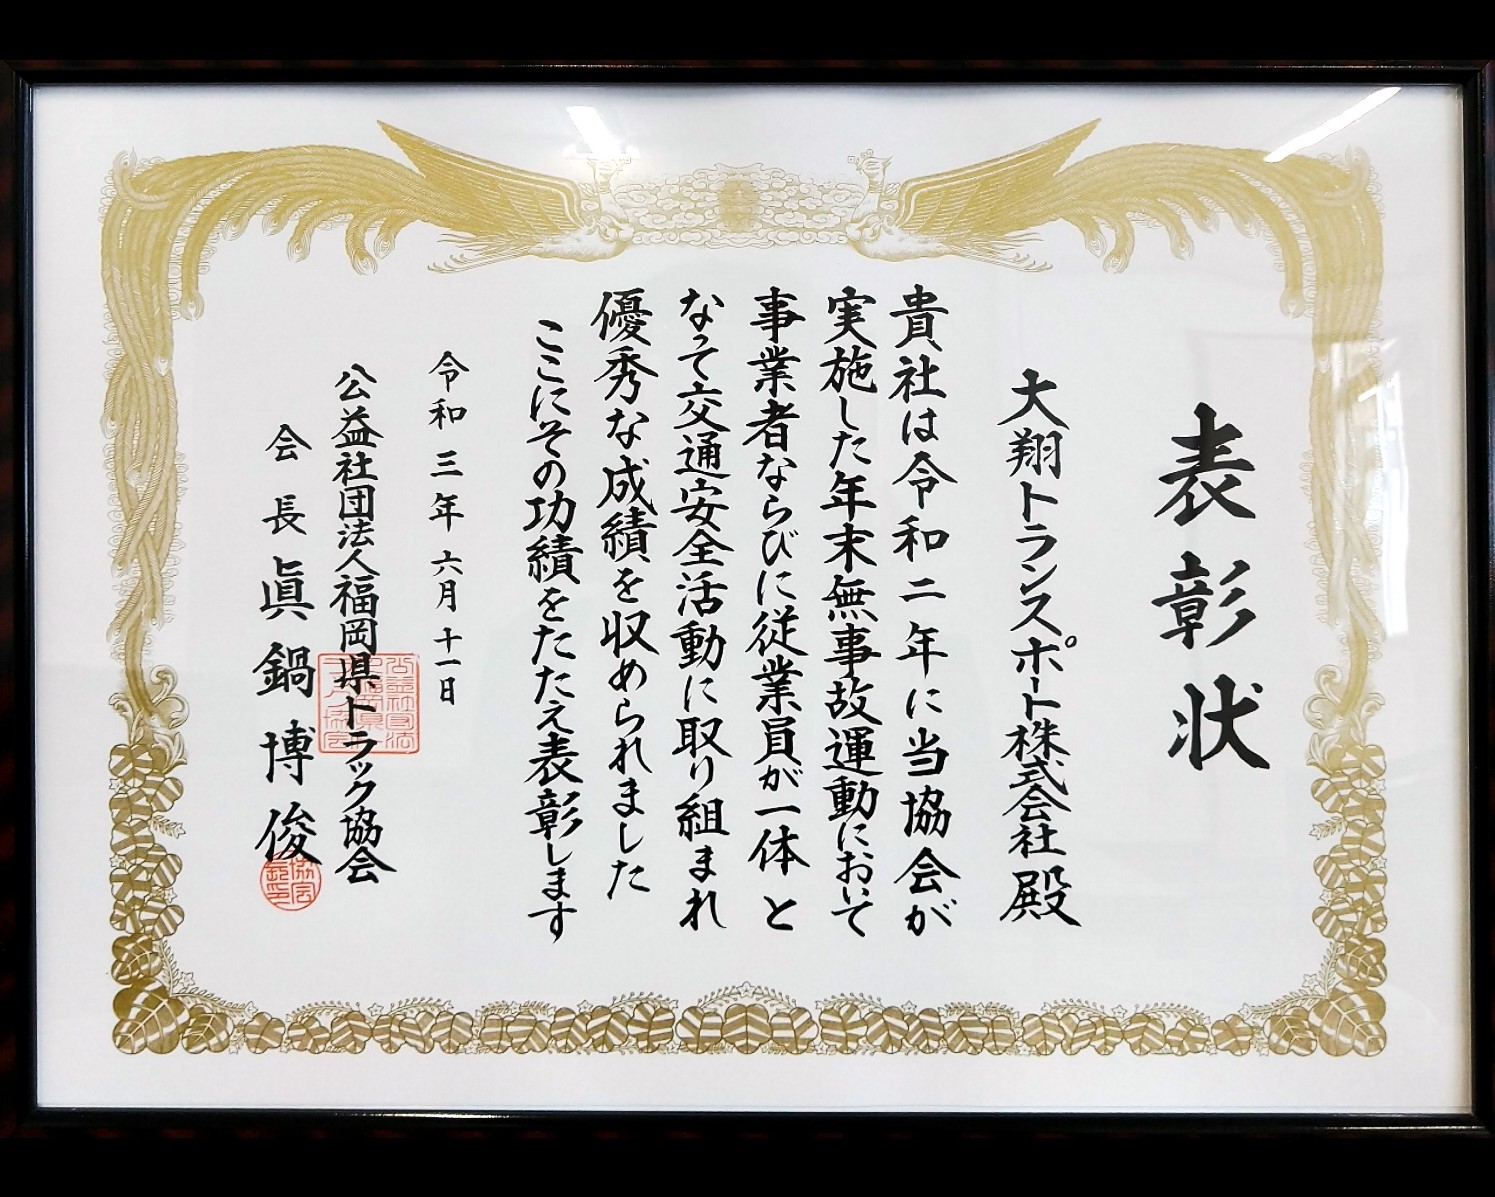 表彰状
大翔トランスポート株式会社 殿
貴社は令和二年に当協会が
実施した年末無事故運動において
事業者ならびに従業員が一体と
なって交通安全活動に取り組まれ
優秀な成績を収められました
ここにその功績をたたえ表彰します
令和三年六月十一日
公益社団法人福岡県トラック協会
会長 眞鍋博俊